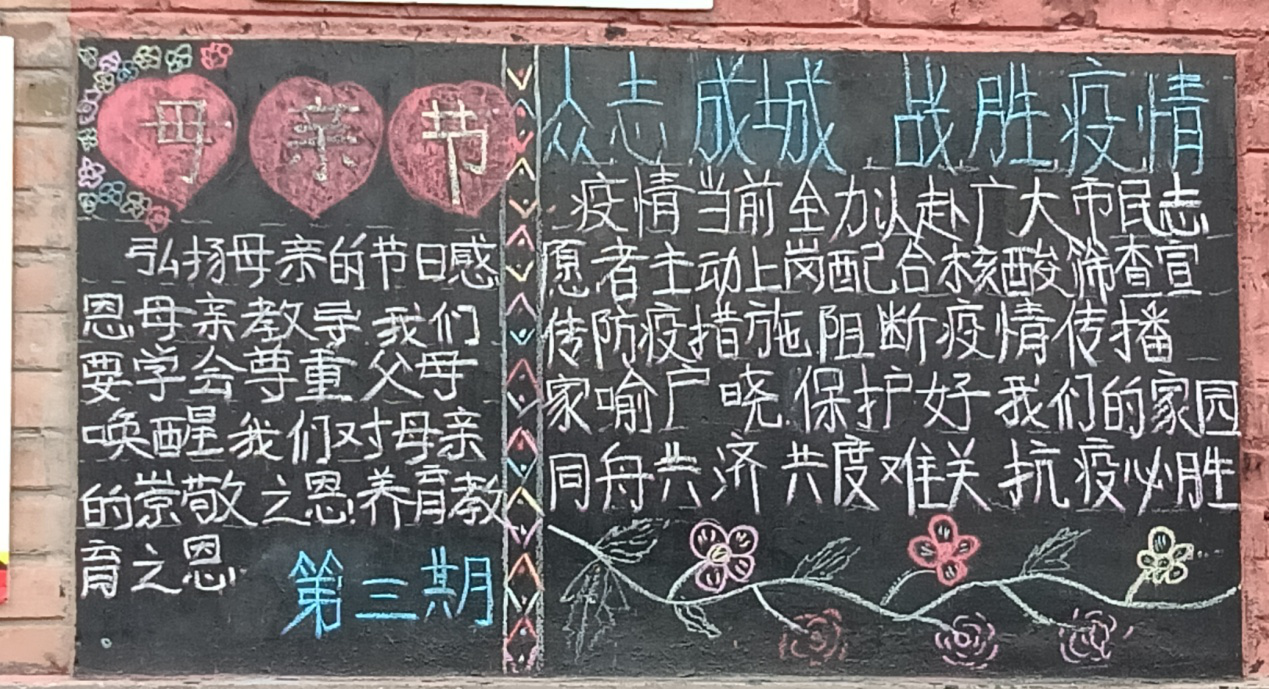 母亲节
弘扬母亲的节日感
恩母亲教导我们
要学会尊重父母
唤醒我们对母亲
的崇敬之恩养育教
育之恩
第三期
众志成城 战胜疫情
疫情当前全力以赴广大市民志
愿者主动上岗配合核酸筛查宣
传防疫措施阻断疫情传播
家喻户晓保护好我们的家园
同舟共济共度难关抗疫必胜